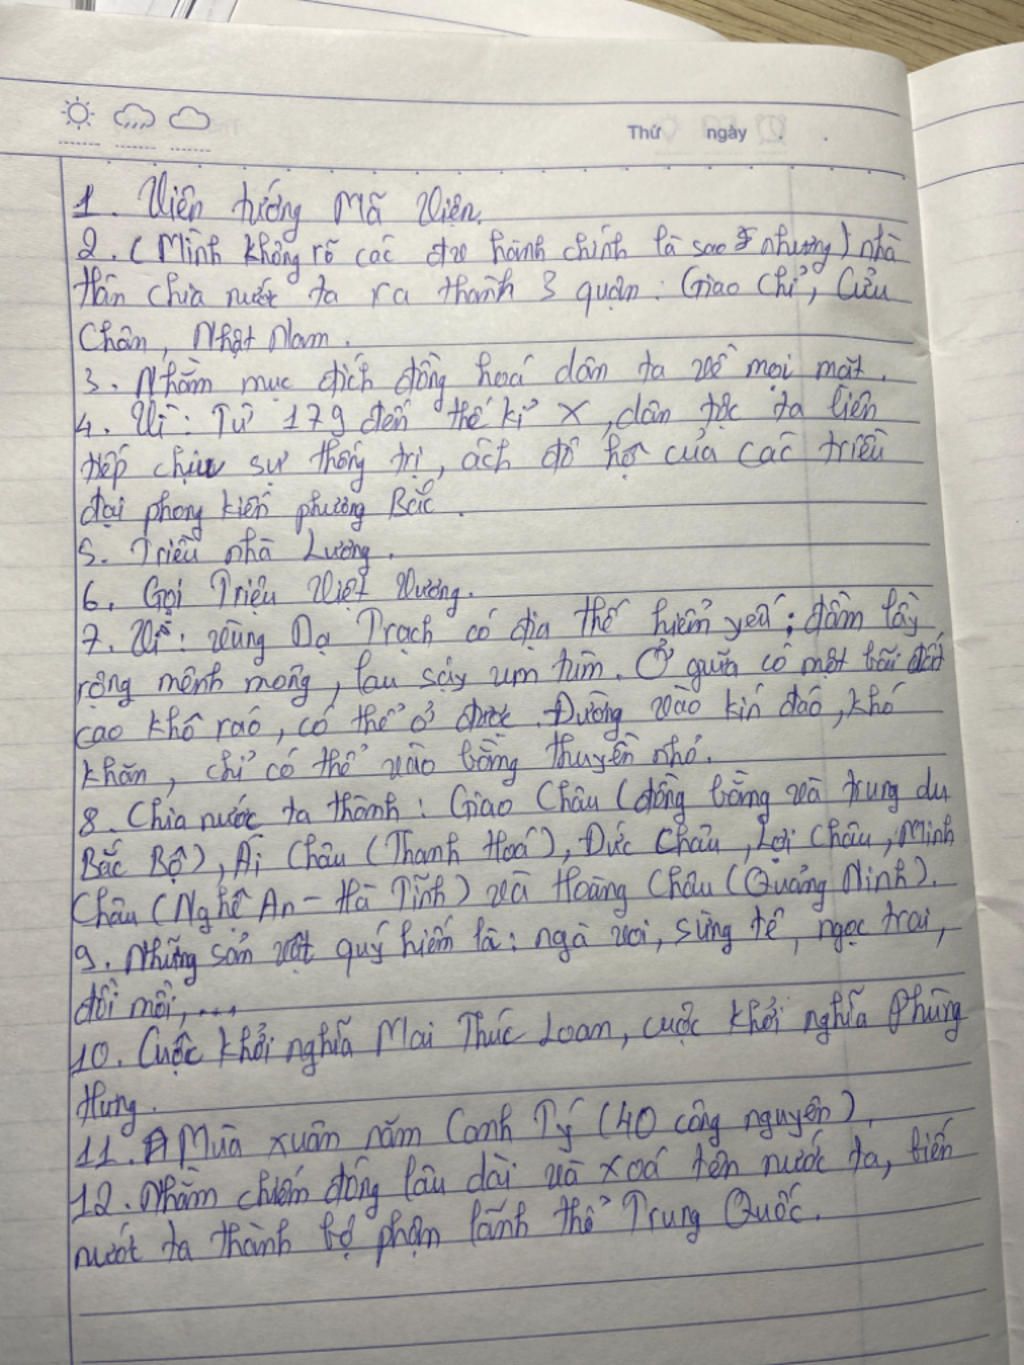 Thứ ngày
1. Viên tướng Mã Viện.
2. (Mình không rõ các đvo hành chính là sao nhưng) nhà
Hán chia nước ta ra thành 3 quận: Giao Chỉ, Cửu
Chân, Nhật Nam.
3. Nhằm mục đích đồng hoá dân ta về mọi mặt.
4. Vì: Từ 179 đến thế kỉ X, dân tộc ta liên
tiếp chịu sự thống trị, ách đô hộ của các triều
đại phong kiến phương Bắc.
5. Triều nhà Lương.
6. Gọi Triệu Việt Vương.
7. Vì: vùng Dạ Trạch có địa thế hiểm yếu; đầm lầy
rộng mênh mông, lau sậy um tùm. Ở giữa có một bãi đất
cao khô ráo, có thể ở được. Đường vào kín đáo, khó
khăn, chỉ có thể vào bằng thuyền nhỏ.
8. Chia nước ta thành: Giao Châu (đồng bằng và trung du
Bắc Bộ), Ái Châu (Thanh Hoá), Đức Châu, Lợi Châu, Minh
Châu (Nghệ An - Hà Tĩnh) và Hoàng Châu (Quảng Ninh).
9. Những sản vật quý hiếm là: ngà voi, sừng tê, ngọc trai,
đồi mồi,....
10. Cuộc khởi nghĩa Mai Thúc Loan, cuộc khởi nghĩa Phùng
Hưng.
11. Mùa xuân năm Canh Tý (40 công nguyên).
12. Nhằm chiếm đóng lâu dài và xoá tên nước ta, biến
nước ta thành bộ phận lãnh thổ Trung Quốc.